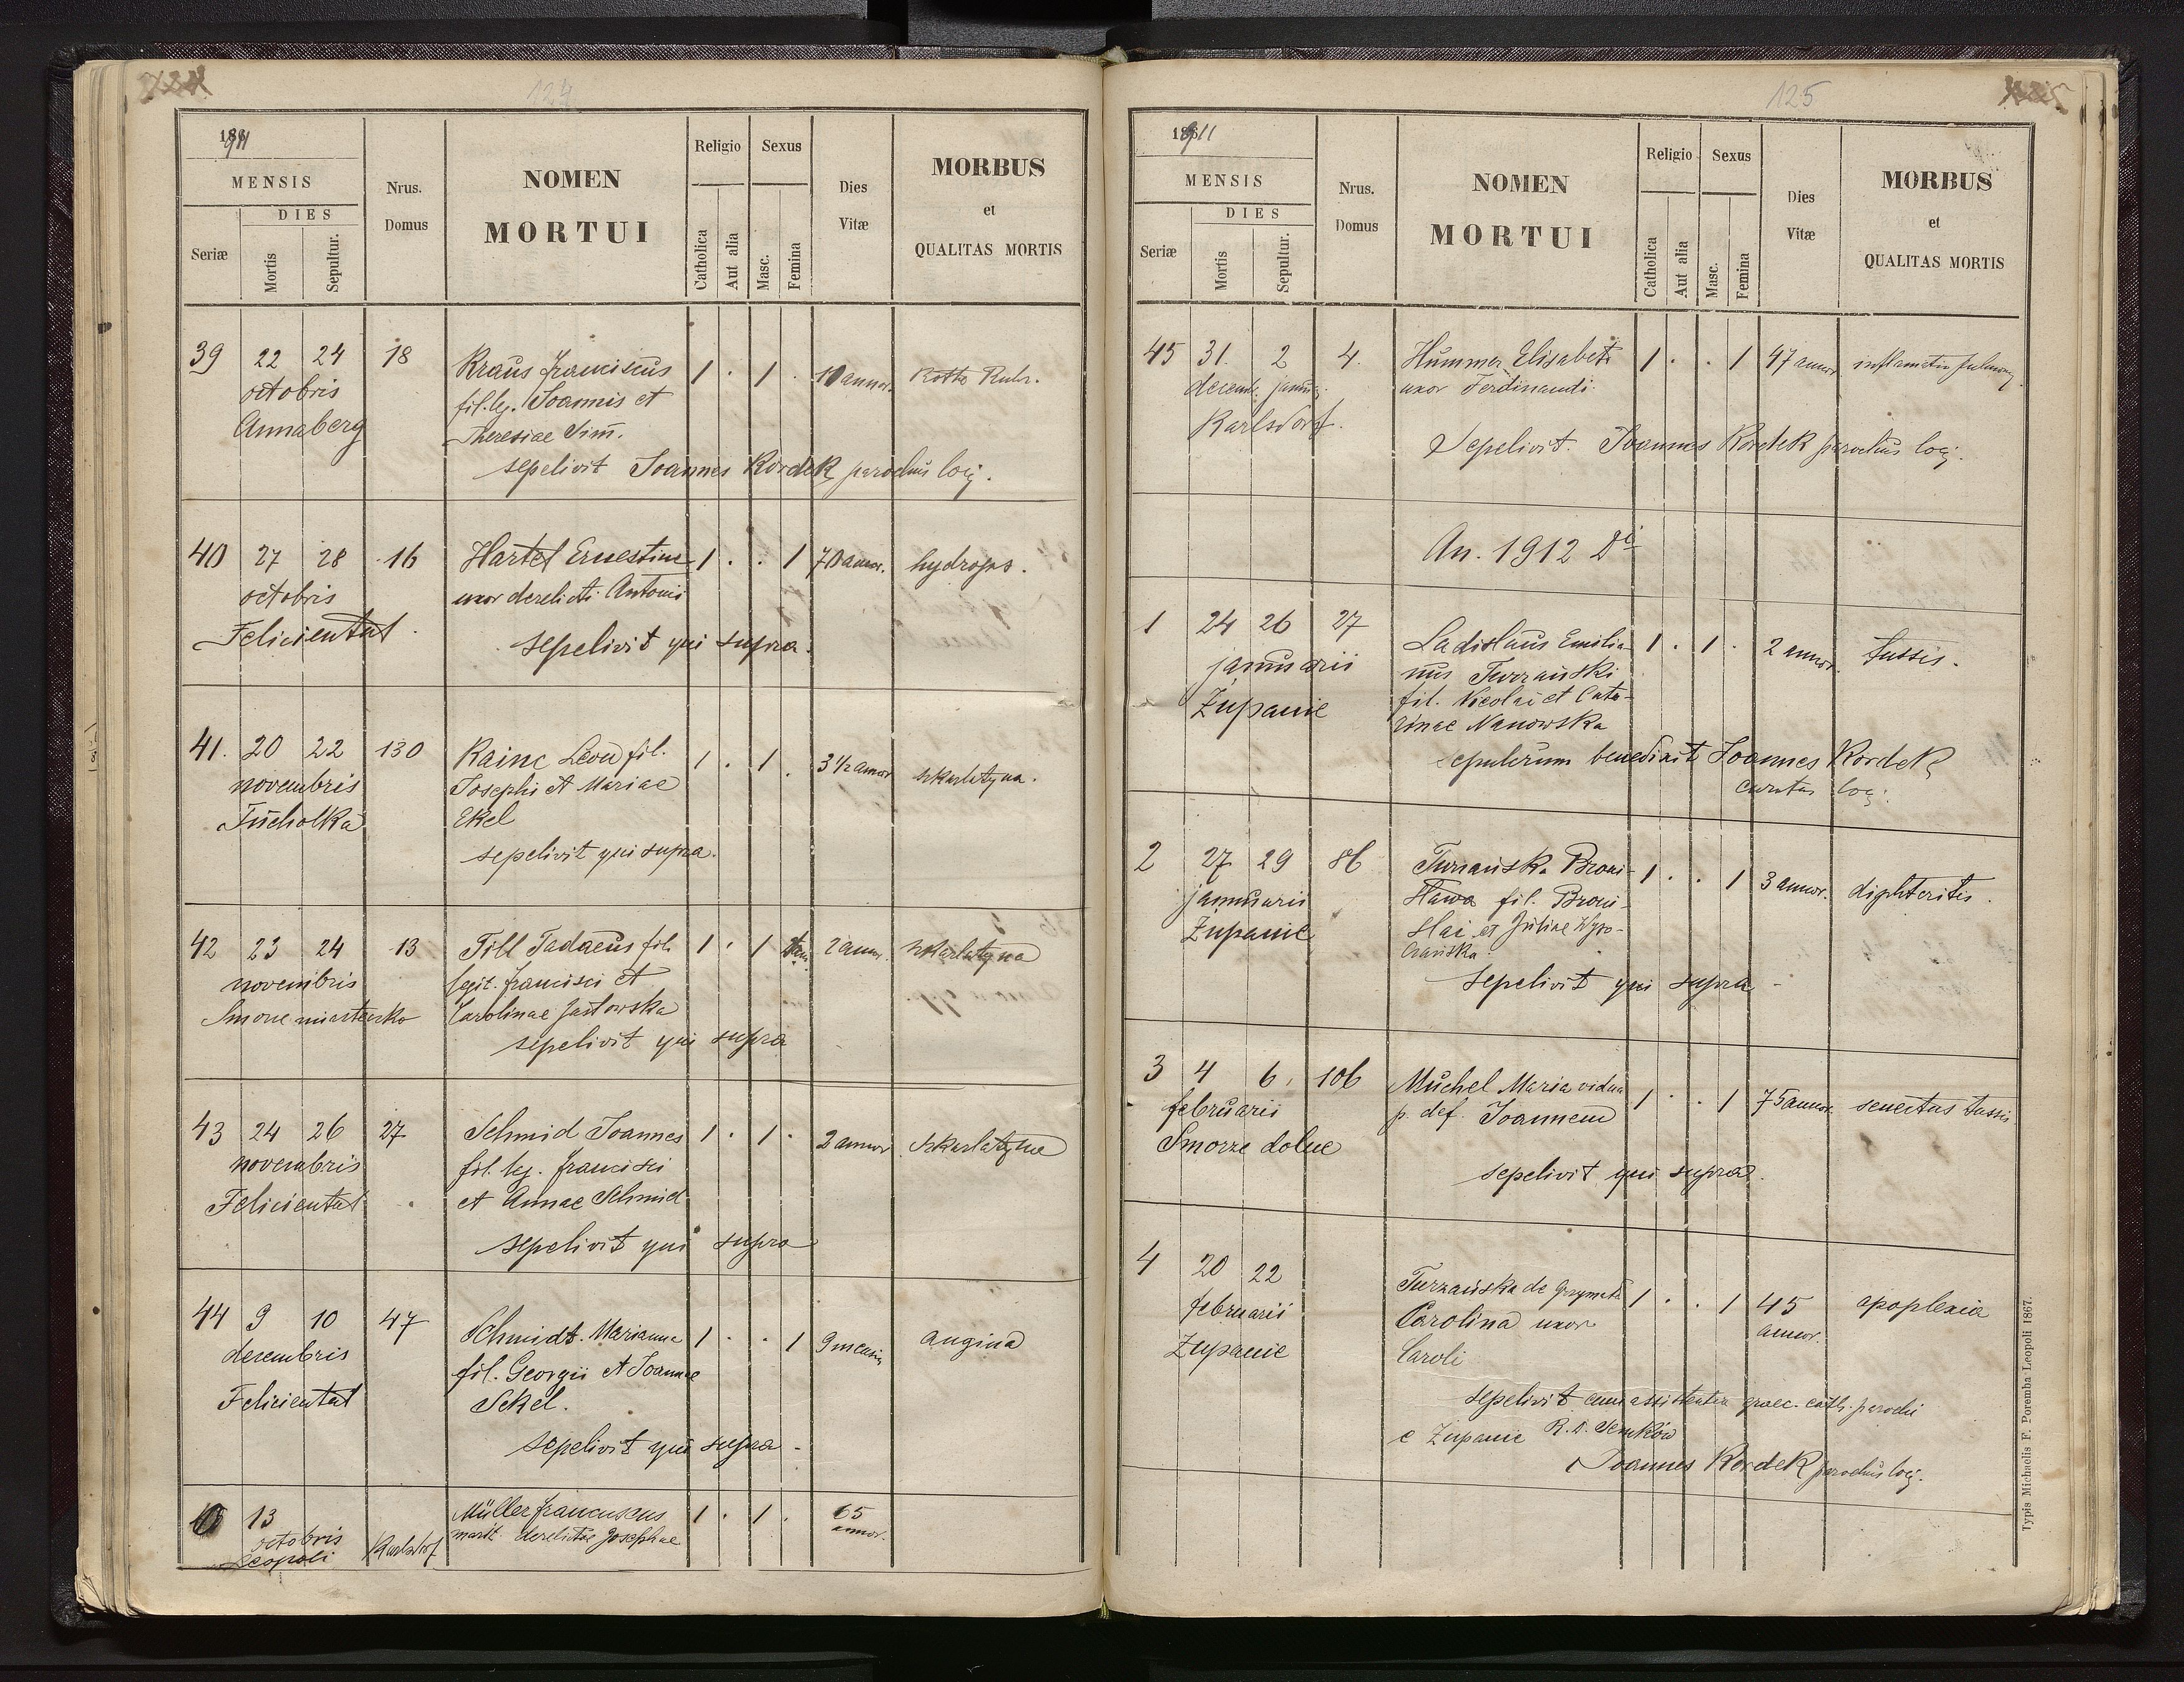 124
1911
MENSIS
DIES
Seriæ
Mortis
Sepultur.
Nrus.
Domus
NOMEN
MORTUI
Religio
Catholica
Aut alia
Sexus
Masc.
Femina
Dies
Vitæ
MORBUS
et
QUALITAS MORTIS
39 22 24 18 Kraus Franciscus 1 . 1 . 10 annor. Rotte Ruhr.
octobris fil. leg. Joannis et
Annaberg Theresiae Sim.
sepelivit Joannes Kordek parochus loci.
40 27 28 16 Hartel Ernestine 1 . . 1 70 annor. hydrops.
octobris uxor derelicti Antonii
Felicientat
sepelivit qui supra.
41. 20 22 130 Rainc Leon fil. 1 . 1 . 3 1/2 annor szkarlatyna.
novembris Josephi et Mariae
Tucholka Ekel
sepelivit qui supra.
42 23 24 13 Till Tadaeus fil. 1 . 1 2 annor. szkarlatyna
novembris legit. Francisci et
miasteczko Carolinae
sepelivit qui supra
43 24 26 27 Schmid Joannes 1 . 1 . 2 annor szkarlatyna
novembris fil. leg. Francisci
Felicientat et Annae Schmid
sepelivit qui supra
44 9 10 47 Schmidt Marianna 1 . . 1 9 mensis angina
decembris fil. Georgii et Joannae
Felicientat Sekel.
sepelivit qui supra
13 Müller Franciscus 1 . 1 . 65
octobris marit. derelictae Josephae annor.
Leopoli Karlsdorf
125
1911
MENSIS
DIES
Seriæ
Mortis
Sepultur.
Nrus.
Domus
NOMEN
MORTUI
Religio
Catholica
Aut alia
Sexus
Masc.
Femina
Dies
Vitæ
MORBUS
et
QUALITAS MORTIS
45 31. 2 4. Hummer Elisabeth 1 . . 1 47 annor inflamatio pulmon.
decemb. januar. uxor Ferdinandi.
Karlsdorf.
Sepelivit. Joannes Kordek parochus loci.
An. 1912 Di
1 24 26 27 Ladislaus Emilia- 1 . 1 . 2 annor. tussis.
januarii nus Turzański
Zupanie fil. Nicolai et Cata-
rinae Nanowska
sepulcrum benedixit Joannes Kordek
curatus loci.
2 27 29 86 Turzańska Broni- 1 . . 1 3 annor. diphteritis.
januarii sława fil. Broni-
Zupanie slai et Juliae Wyso-
czańska
sepelivit qui supra
3 4 6 106 Muchel Maria vidua 1 . . 1 75 annor. senectus tussis
februarii p. def. Joannem
Smorze dolne
sepelivit qui supra.
4 20 22 Turzańska de 1 . . 1 45 apoplexia
februarii Carolina uxor annor.
Zupanie Caroli
sepelivit cum assistentia graec. cath. parochi
e Zupanie R. D. Semków
Joannes Kordek parochus loci.
Typis Michaelis F. Poremba Leopoli 1867.